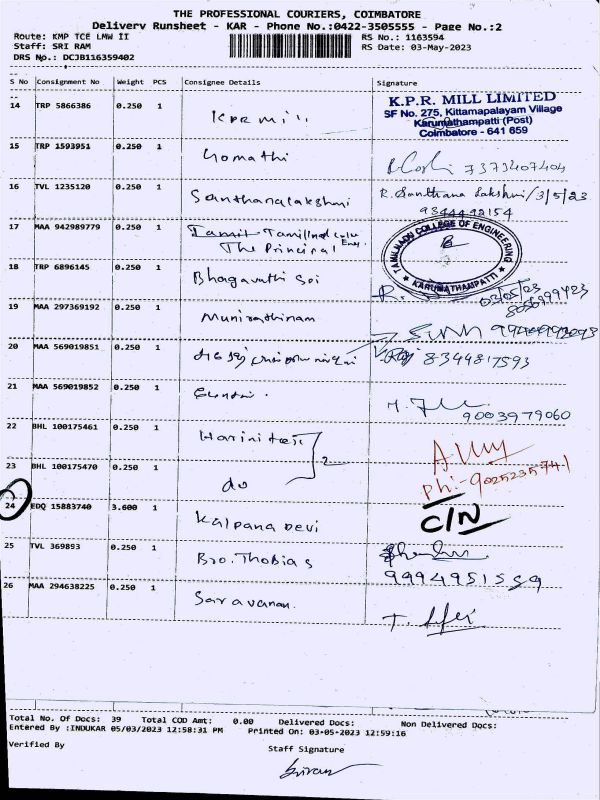 THE PROFESSIONAL COURIERS, COIMBATORE
Delivery Runsheet - KAR - Phone No.:0422-3505555 - Page No.:2
Route: KMP TCE LMW II
RS No.: 1163594
Staff: SRI RAM
RS Date: 03-May-2023
DRS No.: DCJB116359402
S No Consignment No Weight PCS Consignee Details Signature
14 TRP 5866386 0.250 1 KPR Mill
K.P.R. MILL LIMITED
SF No. 275, Kittampalayam Village
Karumathampatti (Post)
Coimbatore - 641 659
15 TRP 1593951 0.250 1 Gomathi 7373407404
16 TVL 1235120 0.250 1 Santhanalakshmi R. Santhana Lakshmi/3/5/23
9344492154
17 MAA 942989779 0.250 1 Tamilnadu
The Principal Eng.
TAMILNADU COLLEGE OF ENGINEERING
★ KARUMATHAMPATTI ★
18 TRP 6896145 0.250 1 Bhagavathi Sri
03/05/23
19 MAA 297369192 0.250 1 Munirathinam
20 MAA 569019851 0.250 1 8344817593
21 MAA 569019852 0.250 1
9003979060
22 BHL 100175461 0.250 1 Harini
23 BHL 100175470 0.250 1 do 2
Ph:-9025235741
24 EDQ 15883740 3.600 1 Kalpana Devi C/N
25 TVL 369893 0.250 1 Bro. Thobias
9994951559
26 MAA 294638225 0.250 1 Saravanan.
Total No. Of Docs: 39 Total COD Amt: 0.00 Delivered Docs: Non Delivered Docs:
Entered By :INDUKAR 05/03/2023 12:58:31 PM Printed On: 03-05-2023 12:59:16
Verified By
Staff Signature